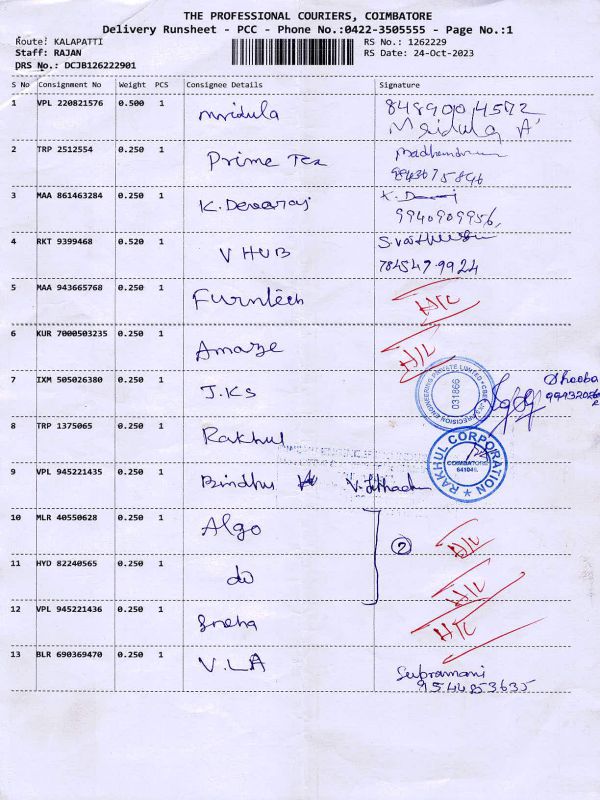 THE PROFESSIONAL COURIERS, COIMBATORE
Delivery Runsheet - PCC - Phone No.:0422-3505555 - Page No.:1
Route: KALAPATTI
RS No.: 1262229
Staff: RAJAN
RS Date: 24-Oct-2023
DRS No.: DCJB126222901
S No Consignment No Weight PCS Consignee Details Signature
1 VPL 220821576 0.500 1 Mridula 8489004572
Mridula A
2 TRP 2512554 0.250 1 Prime Tex
3 MAA 861463284 0.250 1 K. Devaraj K.
9940909956,
4 RKT 9399468 0.520 1 V HUB
784547.9924
5 MAA 943665768 0.250 1 Furntech H/L
6 KUR 7000503235 0.250 1 Amaze H/L
7 IXM 505026380 0.250 1 J.KS
PRECISION ENGINEERING PRIVATE LIMITED
031866
8 TRP 1375065 0.250 1 Rakhul
RAKHUL CORPORATION
COIMBATORE
9 VPL 945221435 0.250 1 Bindhu
10 MLR 40550628 0.250 1 Algo 2 H/L
11 HYD 82240565 0.250 1 do H/L
12 VPL 945221436 0.250 1 Sneha H/L
13 BLR 690369470 0.250 1 V.LA Subramani
9544853635